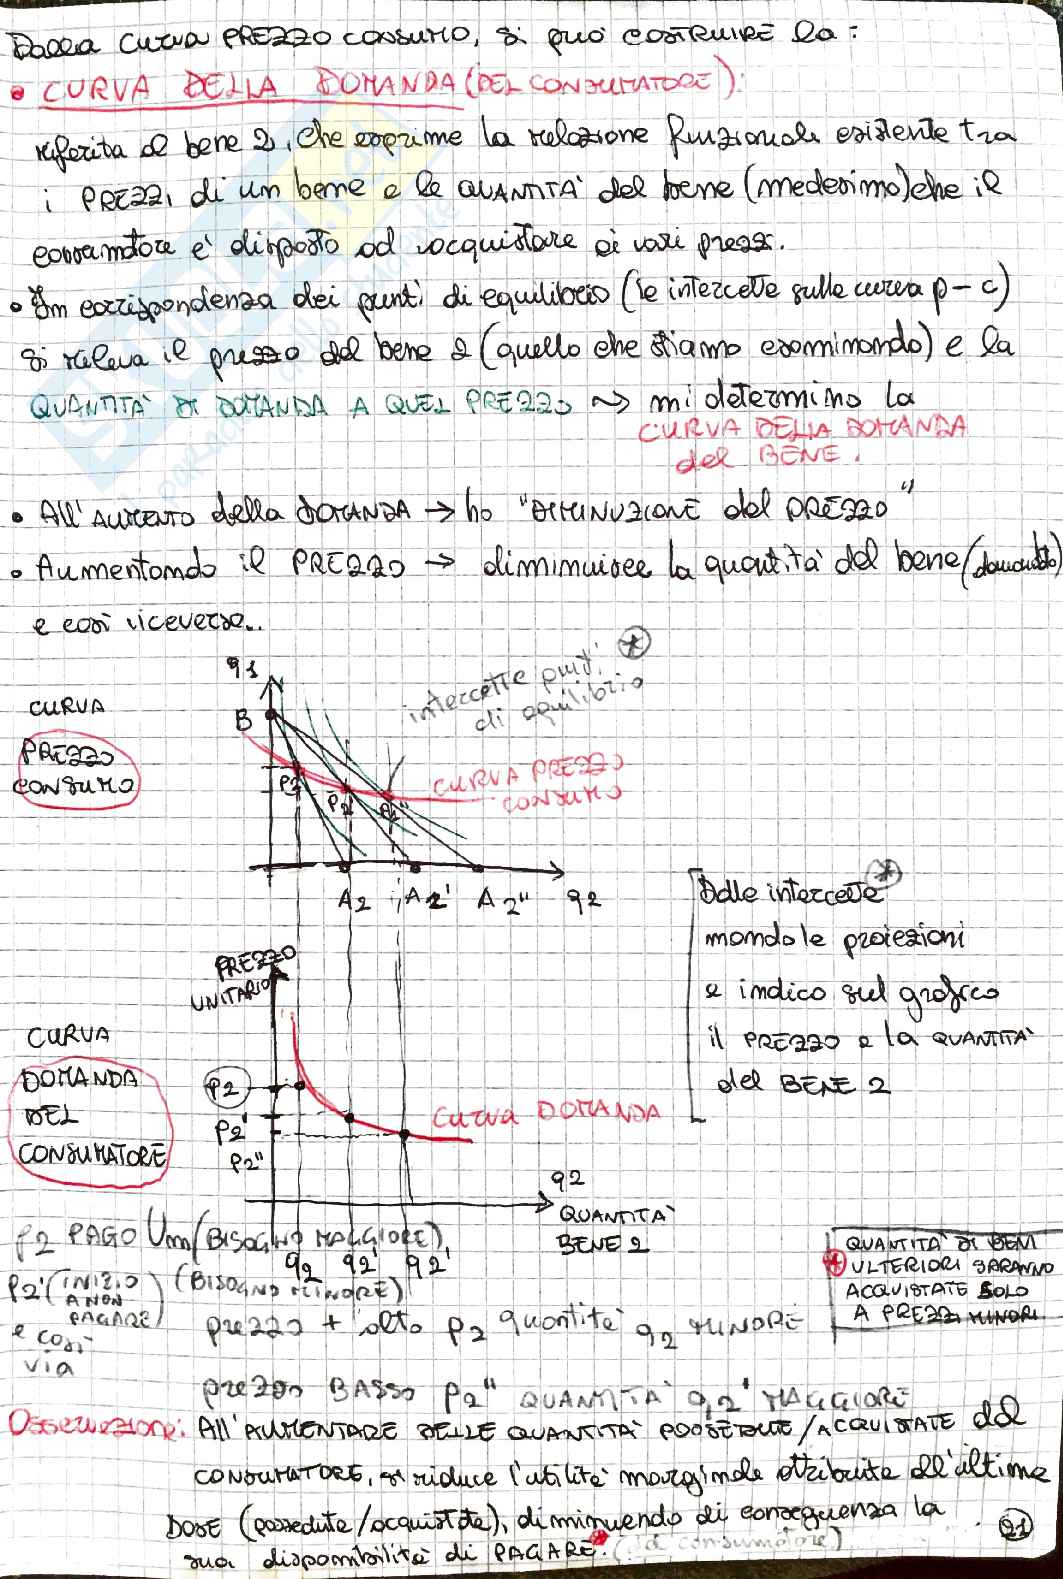 Dalla CURVA PREZZO CONSUMO, si può COSTRUIRE la:
• CURVA DELLA DOMANDA (DEL CONSUMATORE):
riferita al bene 2, che esprime la relazione funzionale esistente tra
i PREZZI di un bene e le QUANTITÀ del bene (medesimo) che il
consumatore è disposto ad acquistare ai vari prezzi.
• In corrispondenza dei punti di equilibrio (le intercette sulla curva p-c)
si rileva il prezzo del bene 2 (quello che stiamo esaminando) e la
QUANTITÀ DI DOMANDA A QUEL PREZZO ~> mi determino la
CURVA DELLA DOMANDA
del BENE.
• All'AUMENTO della DOMANDA → ho "DIMINUZIONE del PREZZO"
• Aumentando il PREZZO → diminuisce la quantità del bene (domandato)
e così viceversa..
q1
intercette punti *
di equilibrio
CURVA
PREZZO
CONSUMO
B
P2
P2'
P2"
CURVA PREZZO
CONSUMO
A2
A2'
A2"
q2
Dalle intercette *
mando le proiezioni
e indico sul grafico
il PREZZO e la QUANTITÀ
del BENE 2
PREZZO
UNITARIO
CURVA
DOMANDA
DEL
CONSUMATORE
P2
P2'
P2"
CURVA DOMANDA
q2
QUANTITÀ
BENE 2
P2 PAGO Um (BISOGNO MAGGIORE)
q2 q2' q2'
P2' (INIZIO
A NON
PAGARE)
(BISOGNO MINORE)
e così
via
prezzo + alto P2 quantità q2 MINORE
prezzo BASSO P2" QUANTITÀ q2' MAGGIORE
* QUANTITÀ DI BENI
ULTERIORI SARANNO
ACQUISTATE SOLO
A PREZZI MINORI
Osservazione: All'AUMENTARE DELLE QUANTITÀ POSSEDUTE/ACQUISTATE dal
CONSUMATORE, si riduce l'utilità marginale attribuita all'ultima
DOSE (posseduta/acquistata), diminuendo di conseguenza la
sua disponibilità di PAGARE.* (del consumatore)
21